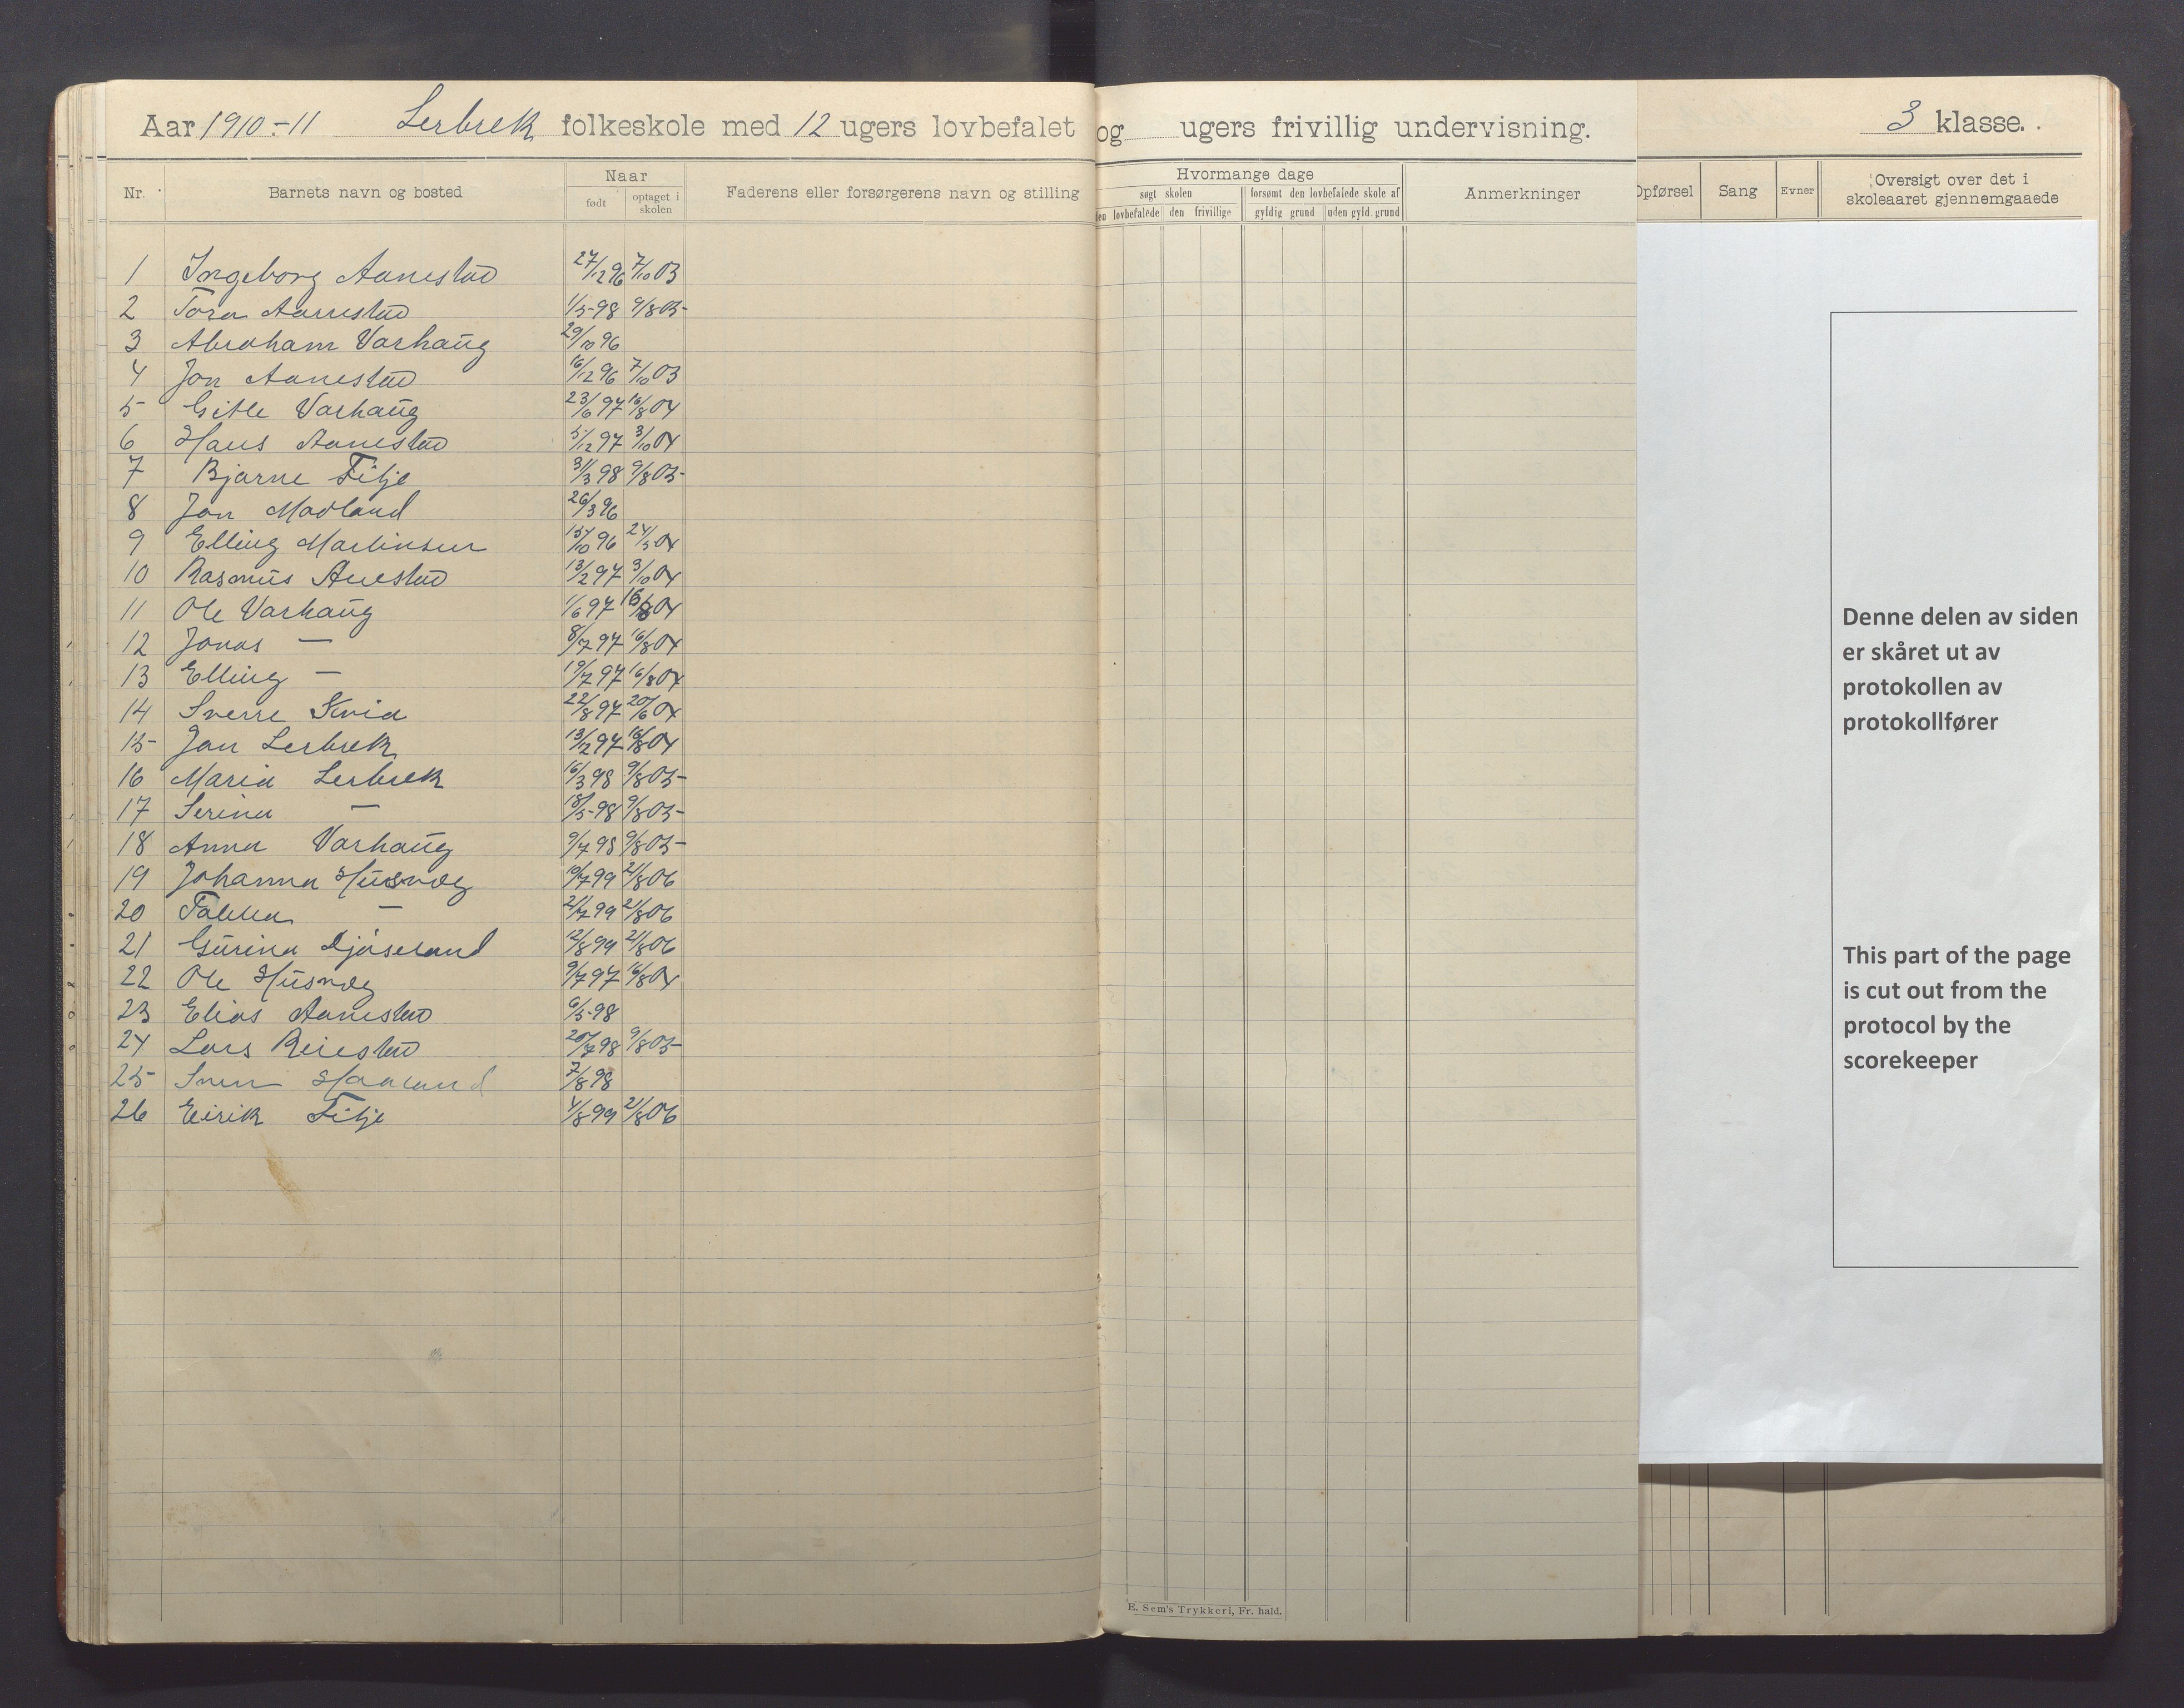 Aar 1910.-11 Lerbrek folkeskole med 12 ugers lovbefalet og ugers frivillig undervisning. 3 klasse.
Nr. Barnets navn og bosted Naar født optaget i skolen Faderens eller forsørgerens navn og stilling Hvormange dage søgt skolen den lovbefalede den frivillige forsømt den lovbefalede skole af gyldig grund uden gyld. grund Anmerkninger Opførsel Sang Evner Oversigt over det i skoleaaret gjennemgaaede
1 Ingeborg Aanestad 27/12 96 7/10 03
2 Tora Aanestad 1/5-98 9/8 05-
3 Abraham Varhaug 29/10 96
4 Jon Aanestad 16/12 96 7/10 03
5 Gitle Varhaug 23/6 97 16/8 04
6 Hans Aanestad 5/12 97 3/10 04
7 Bjarne Filje 31/3 98 9/8 05-
8 Jon Madland 26/3 96
9 Elling Martinsen 15/10 96 24/5 04
10 Rasmus Anestad 13/2 97 3/10 04
11 Ole Varhaug 1/6 97 16/8 04
12 Jonas — 8/7 97 16/8 04
13 Elling — 19/7 97 16/8 04
14 Sverre Kvia 22/8 97 20/6 04
15 Jan Lerbrek 13/12 97 16/8 04
16 Maria Lerbrek 16/3 98 9/8 05-
17 Serina — 18/5-98 9/8 05-
18 Anna Varhaug 9/7 98 9/8 05-
19 Johanna Husvæg 10/7 99 21/8 06
20 — 21/7 99 21/8 06
21 Gurina 12/8 99 21/8 06
22 Ole Husvæg 9/7 97 16/8 04
23 Elias Aanestad 6/5-98
24 Lars Reiestad 20/7 98 9/8 05-
25 Sven Haaland 7/8 98
26 Eirik Filje 4/8 99 21/8 06
Denne delen av siden
er skåret ut av
protokollen av
protokollfører
This part of the page
is cut out from the
protocol by the
scorekeeper
E. Sem's Trykkeri, Fr. hald.